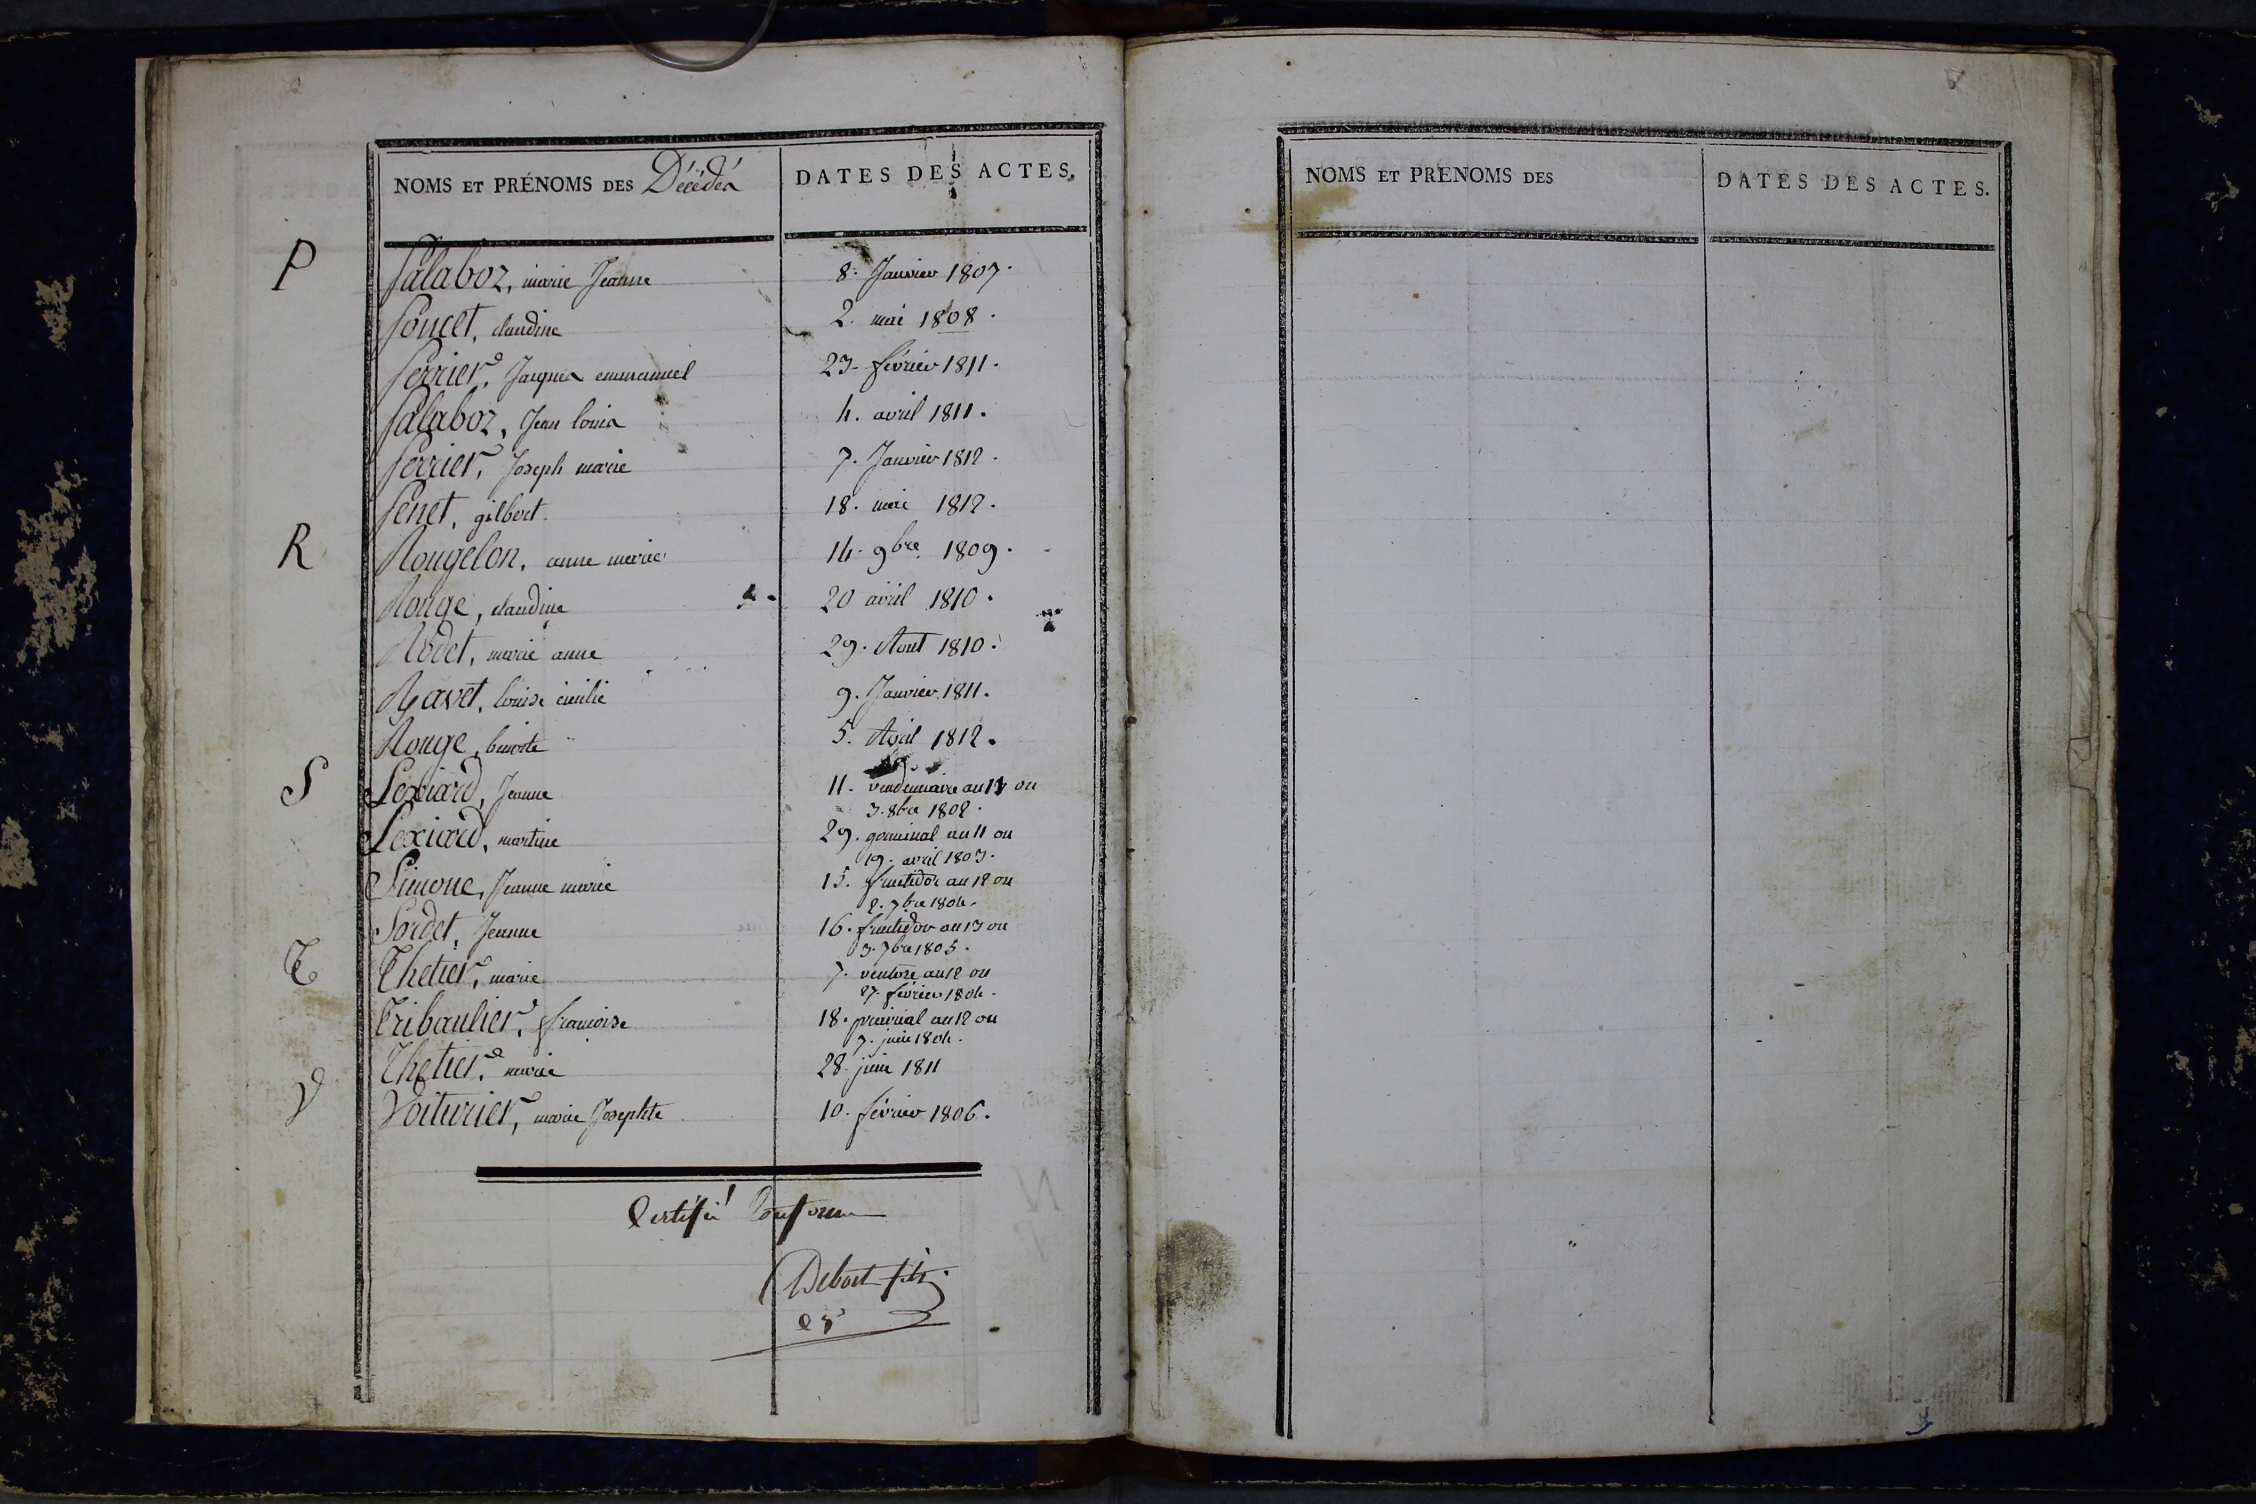 NOMS ET PRÉNOMS DES Décédés DATES DES ACTES.
P Palaboz, marie Jeanne 8. Janvier 1807.
Poncet, claudine 2. mai 1808.
Perrier, Jacques emmanuel 23. février 1811.
Palaboz, Jean louis 4. avril 1811.
Perrier, Joseph marie 7. Janvier 1812.
Penet, gilbert. 18. mai 1812.
R Rougelon, anne marie 14. 9bre 1809.
Rouge, claudine 20 avril 1810.
Rodet, marie anne 29. Aout 1810.
Ravet, louise 9. Janvier 1811.
Rouge, benoite 5. Avril 1812.
S Sexiard, Jeanne 11. vendemiaire an 11 ou
3. 8bre 1802.
Sexiard, martine 29. germinal an 11 ou
19. avril 1803.
Simone, Jeanne marie 15. fructidor an 12 ou
2. 7bre 1804.
Sordet, Jeanne 16. fructidor an 13 ou
3. 7bre 1805.
T Thetier, marie 7. ventose an 12 ou
27. février 1804.
Tribaulier, françoise 18. prairial an 12 ou
7. juin 1804.
Thetier, marie 28. juin 1811
V Voiturier, marie Josephte 10. février 1806.
Certifié Conforme
Debost
NOMS ET PRÉNOMS DES DATES DES ACTES.